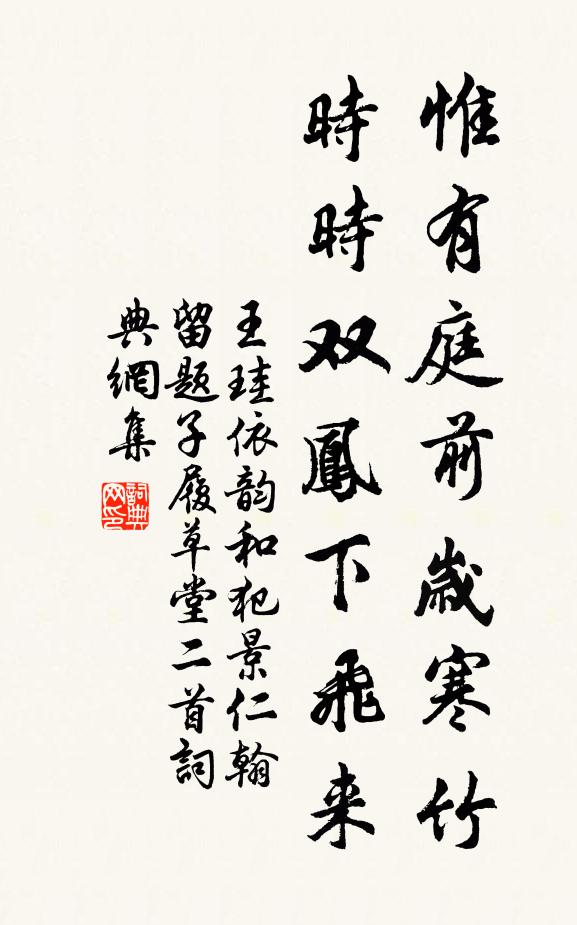 惟有庭前歲寒竹
時時双鳳下飛来
王珪依韵和犯景仁翰
留题子履草堂二首詞
典網集
詞典网印